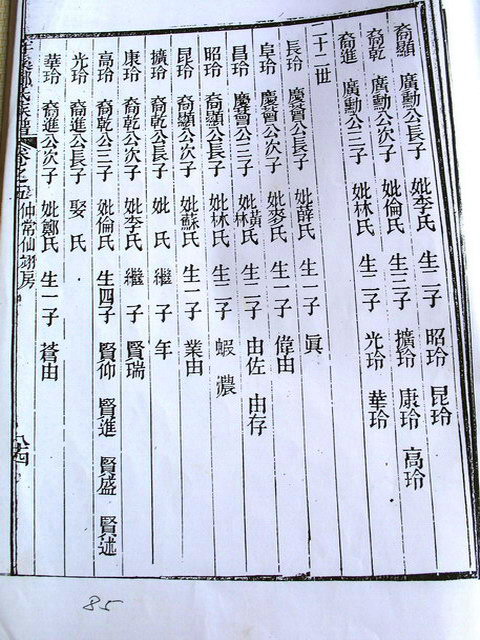 裔顯 廣勳公長子 妣李氏 生二子 昭玲 昆玲
裔乾 廣勳公次子 妣倫氏 生三子 擴玲 康玲 高玲
裔進 廣勳公三子 妣林氏 生二子 光玲 華玲
二十二世
長玲 慶曾公長子 妣薛氏 生一子 眞
阜玲 慶曾公次子 妣麥氏 生一子 偉由
昌玲 慶曾公三子 妣黃氏林氏 生二子 由佐 由存
昭玲 裔顯公長子 妣林氏 生二子 蝦 濃
昆玲 裔顯公次子 妣蘇氏 生一子 業由
擴玲 裔乾公長子 妣 氏 繼 子 年
康玲 裔乾公次子 妣李氏 繼 子 賢瑞
高玲 裔乾公三子 妣倫氏 生四子 賢仰 賢進 賢盛 賢述
光玲 裔進公長子 娶 氏
華玲 裔進公次子 妣鄭氏 生一子 蒼由
氏族譜 卷之五 仙常仙翊房 八四
85